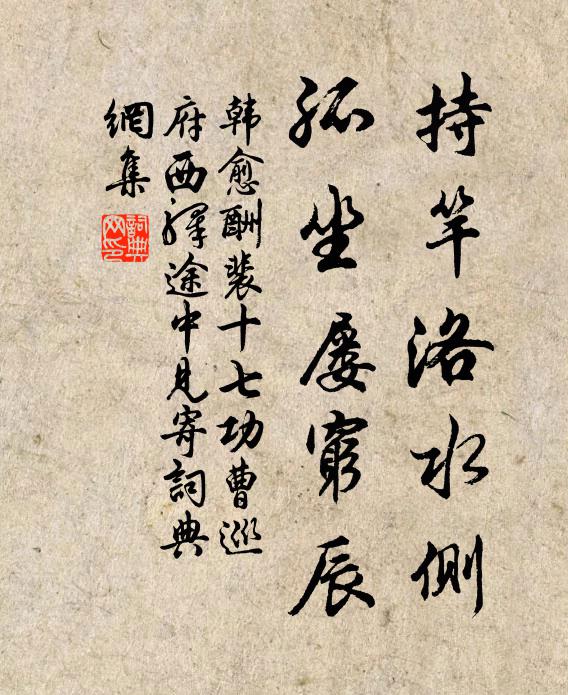 持竿洛水側
孤坐屡窮辰
韩愈酬裴十七功曹巡
府西驿途中見寄詞典
網集
詞典
网印